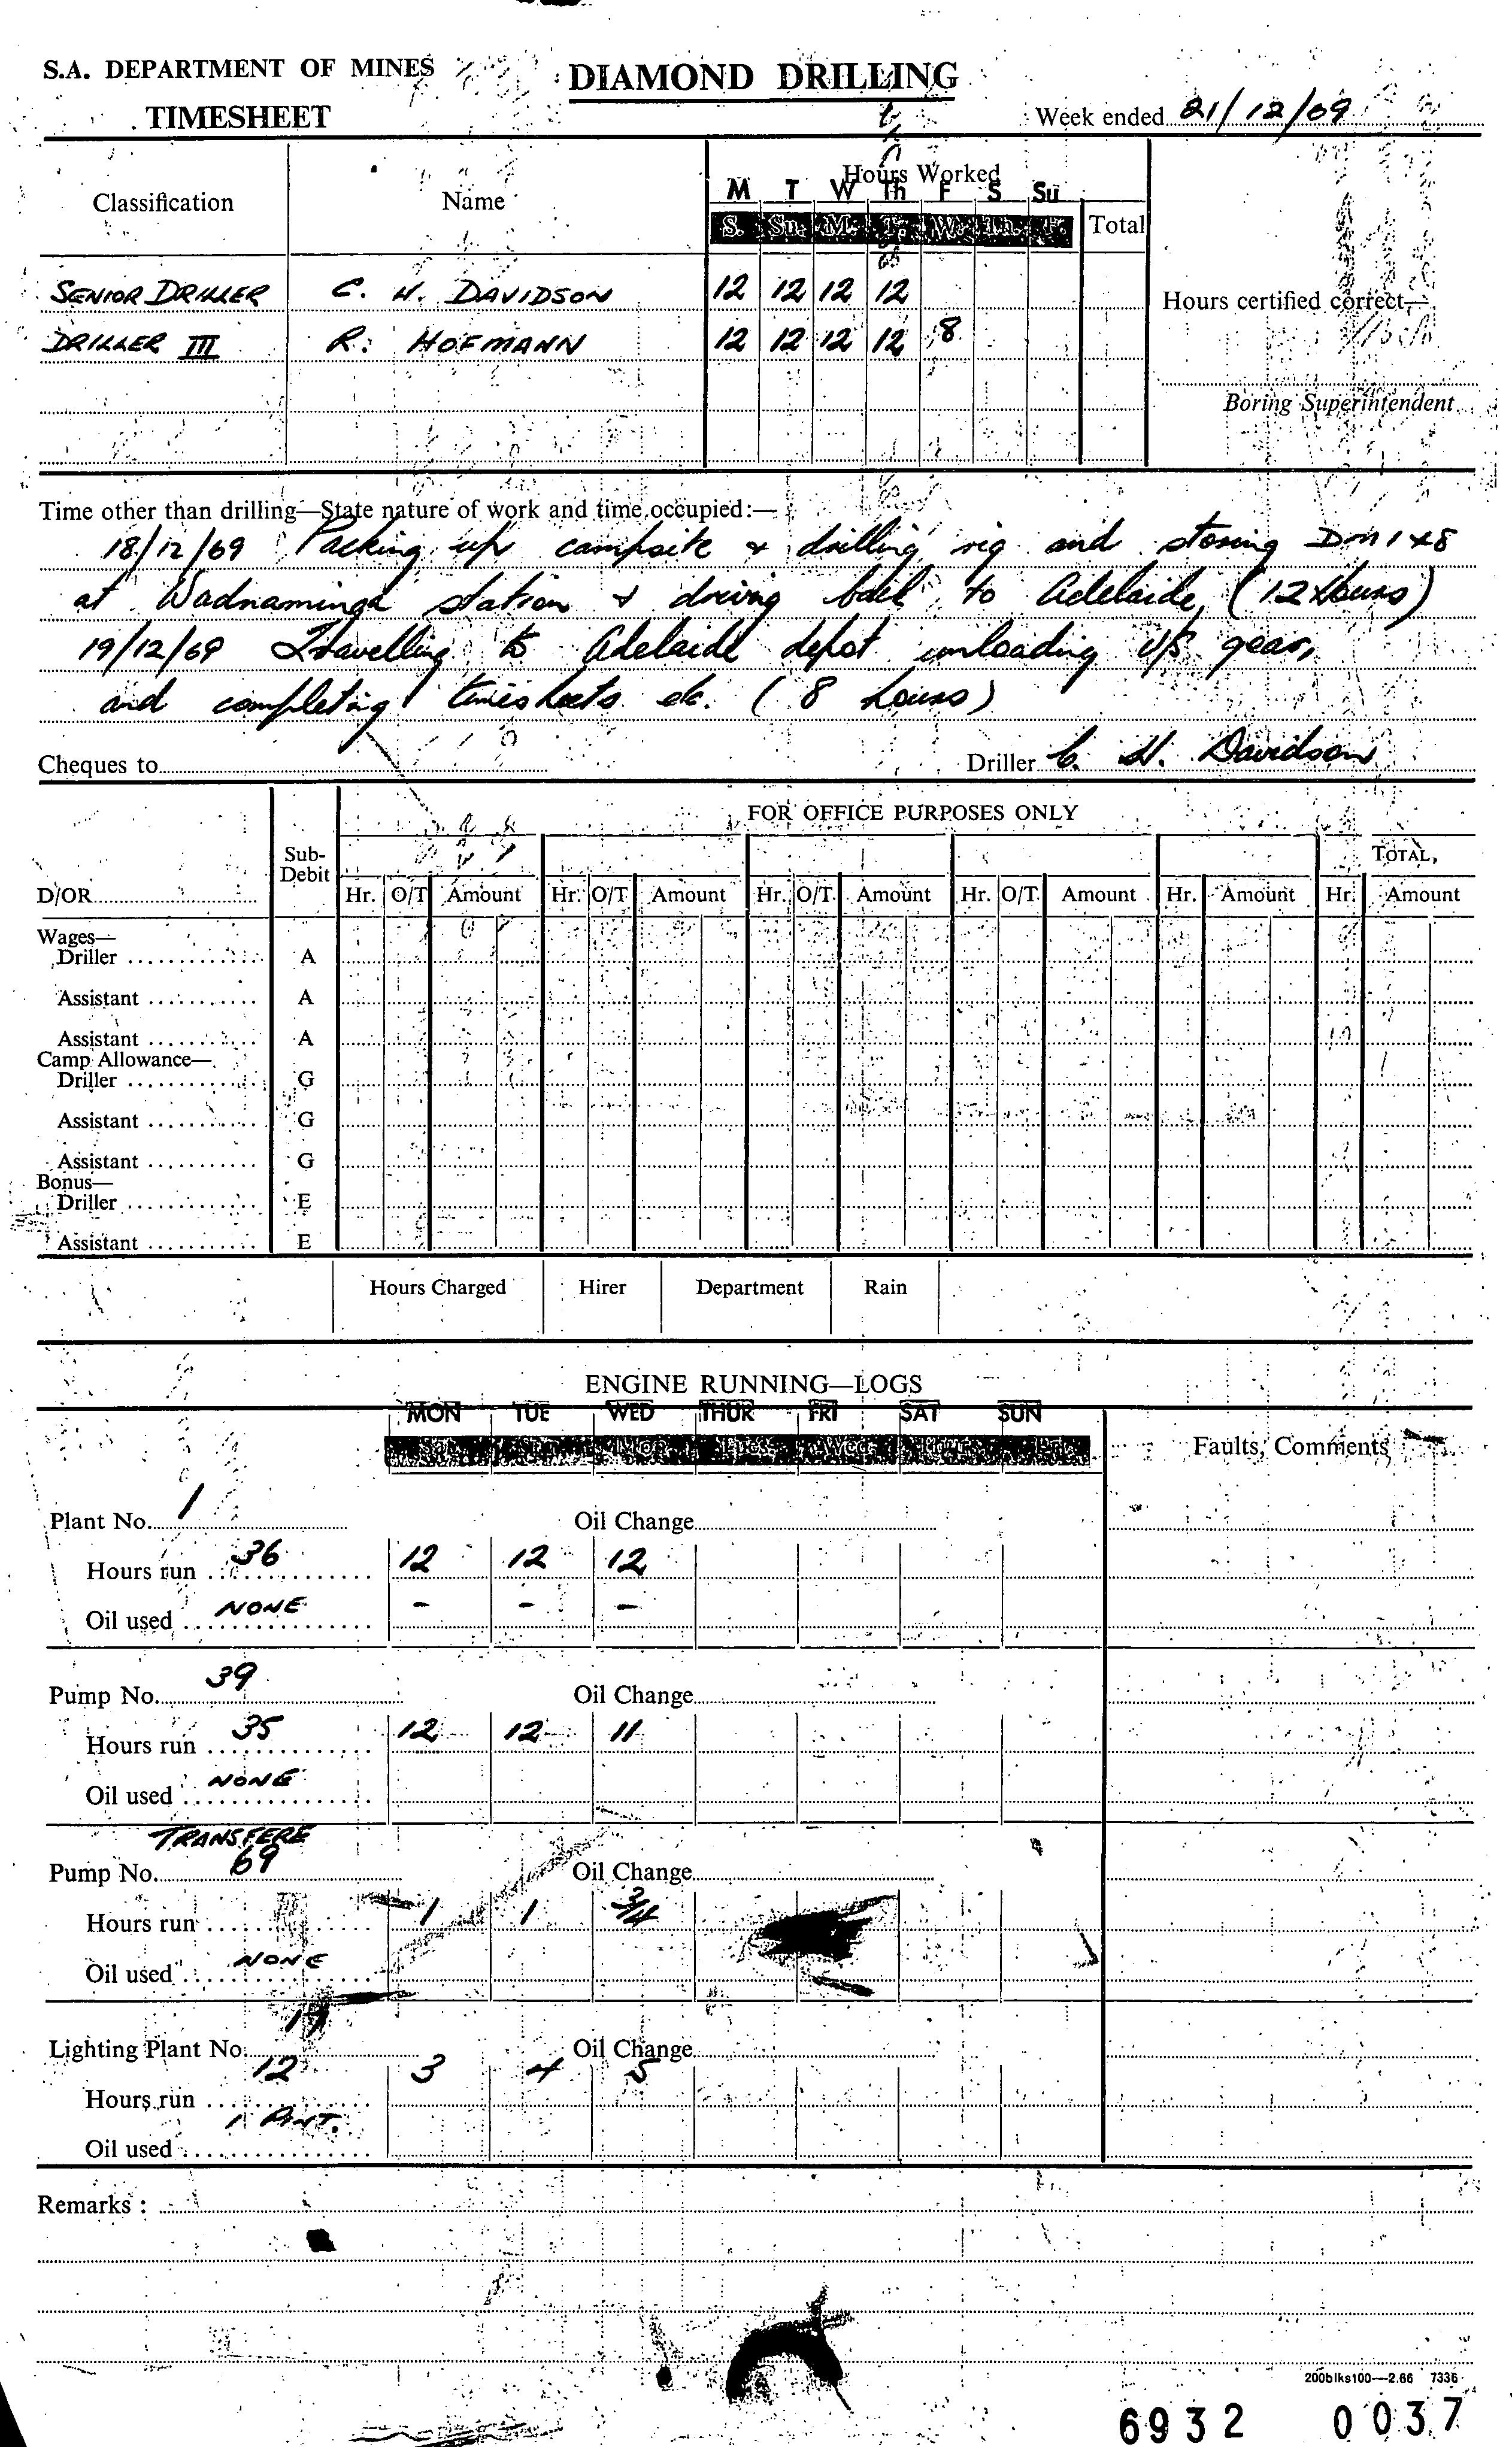 S.A. DEPARTMENT OF MINES
DIAMOND DRILLING
TIMESHEET
Week ended 21/12/69
Classification Name Hours Worked
M T W Th F S Su
S. Sn. M. T. W. Th. F. Total
SENIOR DRILLER C. H. DAVIDSON 12 12 12 12
Hours certified correct—
DRILLER III R. HOFMANN 12 12 12 12 8
Boring Superintendent
Time other than drilling—State nature of work and time occupied:—
18/12/69 Packing up campsite & drilling rig and storing DM 1 & 8
at Wadnaminga station & driving back to Adelaide (12 Hours)
19/12/69 Travelling to Adelaide depot unloading U/S gear,
and completing timesheets etc. (8 hours)
Cheques to Driller C. H. Davidson
FOR OFFICE PURPOSES ONLY
Sub-Debit TOTAL
D/OR Hr. O/T Amount Hr. O/T Amount Hr. O/T. Amount Hr. O/T. Amount Hr. Amount Hr. Amount
Wages—
Driller A
Assistant A
Assistant A
Camp Allowance—
Driller G
Assistant G
Assistant G
Bonus—
Driller E
Assistant E
Hours Charged Hirer Department Rain
ENGINE RUNNING—LOGS
MON TUE WED THUR FRI SAT SUN
Faults, Comments
Plant No. 1 Oil Change
Hours run 36 12 12 12
Oil used NONE - - -
Pump No. 39 Oil Change
Hours run 35 12 12 11
Oil used NONE
TRANSFERE
Pump No. 69 Oil Change
Hours run 1 1 3/4
Oil used NONE
Lighting Plant No. Oil Change
Hours run 12 3 4 5
Oil used 1 PINT.
Remarks :
200blks100—2.66 7336
6932 0037